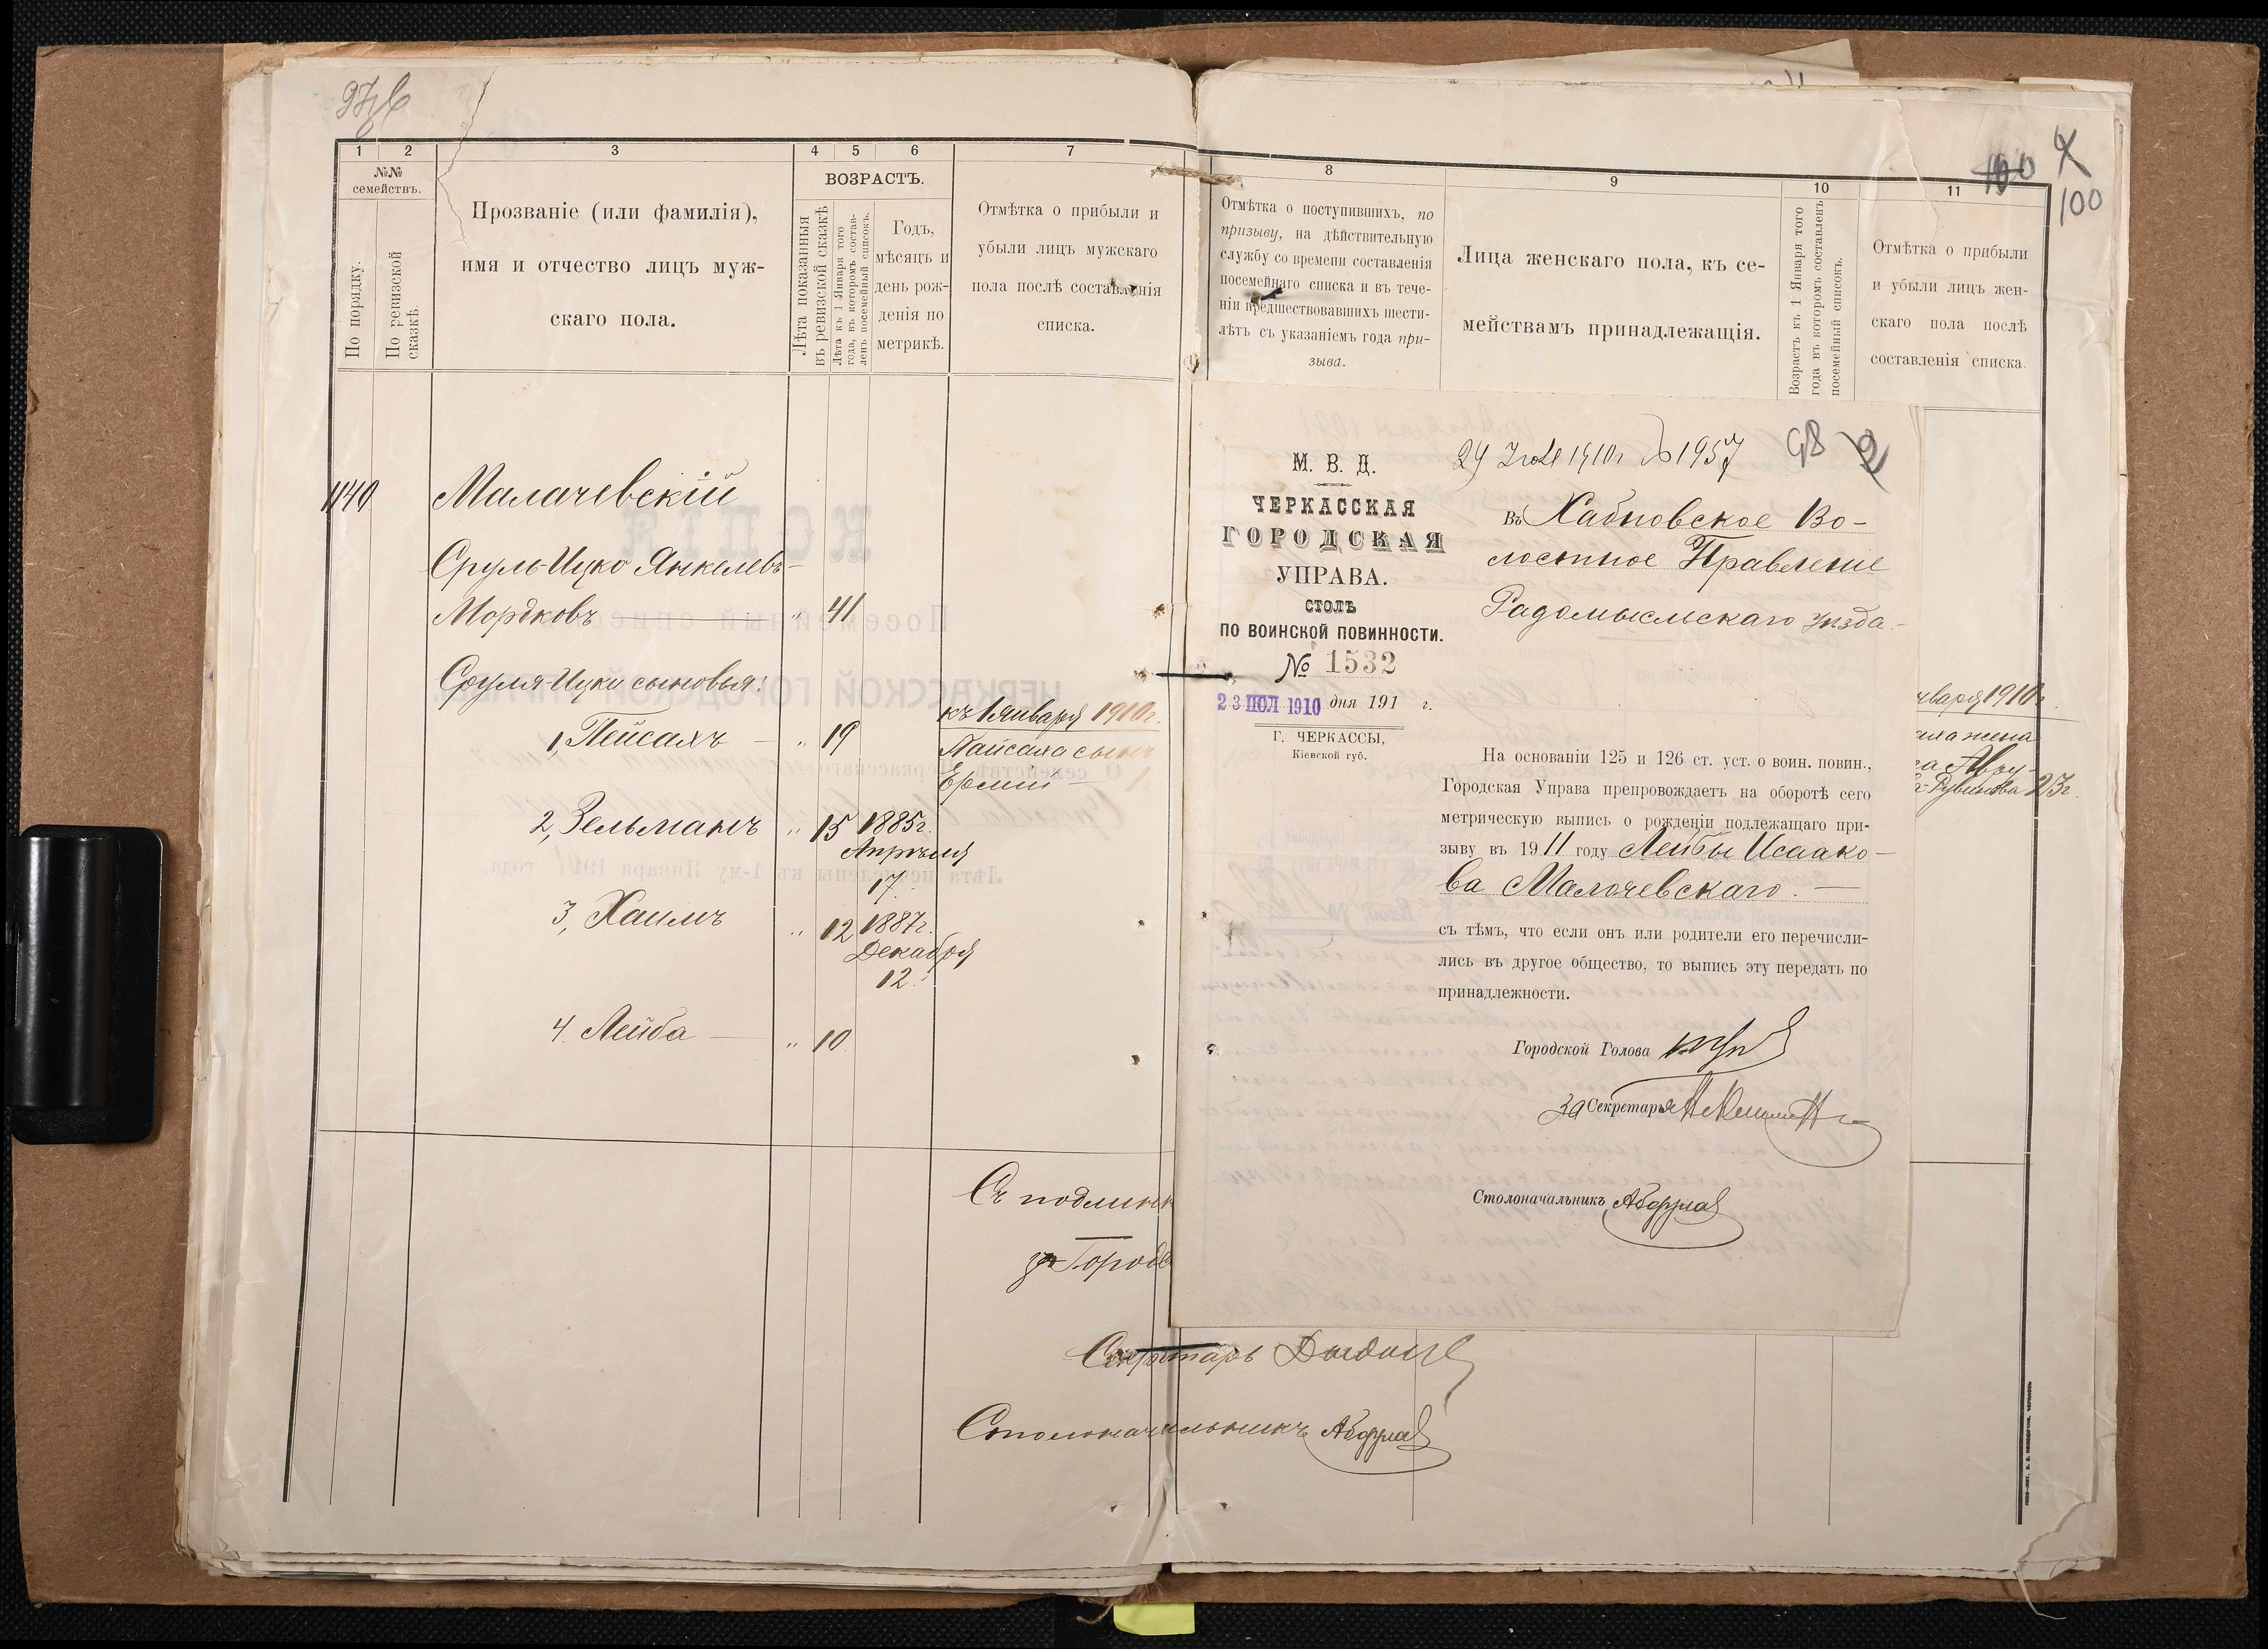 1
2
3
4
5
6
7
№№
семействъ.
По порядку.
По ревизской
сказкѣ.
Прозваніе (или фамилія),
имя и отчество лицъ муж-
скаго пола.
ВОЗРАСТЪ.
Лѣта показанныя
въ ревизской сказкѣ
Лѣта къ 1 Января того
года, въ которомъ состав-
ленъ посемейный списокъ.
Годъ,
мѣсяцъ и
день рож-
денія по
метрикѣ.
Отмѣтка о прибыли и
убыли лицъ мужскаго
пола послѣ составленія
списка.
1140
Малачевскій
Сруль-Ицко Янкелевъ-
Мордковъ " 41
Сруля-Ицки сыновья:
1, Пейсахъ — " 19
къ 1 Января 1910 г.
Пайсаха сынъ
Ермій — 1.
2, Зельманъ " 15 1885 г.
Апрѣля
17.
3, Хаимъ " 12 1887 г.
Декабря
12.
4. Лейба — " 10
Съ подлинн
за Городс
Секретарь
Столоначальникъ
8
9
10
11
100
100
Отмѣтка о поступившихъ, по
призыву, на дѣйствительную
службу со времени составленія
посемейнаго списка и въ тече-
ніи предшествовавшихъ шести-
лѣтъ съ указаніемъ года при-
зыва.
Лица женскаго пола, къ се-
мействамъ принадлежащія.
Возрастъ къ 1 Января того
года въ которомъ составленъ
посемейный списокъ.
Отмѣтка о прибыли
и убыли лицъ жен-
скаго пола послѣ
составленія списка.
нваря 1910 г.
аха жена
Рувинова 23 г.
М. В. Д.
ЧЕРКАССКАЯ
ГОРОДСКАЯ
УПРАВА.
СТОЛЪ
ПО ВОИНСКОЙ ПОВИННОСТИ.
№ 1532
23 ІЮЛ 1910 дня 191 г.
Г. ЧЕРКАССЫ,
Кіевской губ.
1910 г. № 1957
98
Въ Хабновское Во-
лостное Правленіе
Радомысльскаго уѣзда.-
На основаніи 125 и 126 ст. уст. о воин. повин.,
Городская Управа препровождаетъ на оборотѣ сего
метрическую выпись о рожденіи подлежащаго при-
зыву въ 1911 году Лейбы Исаако-
ва Малочевскаго. —
съ тѣмъ, что если онъ или родители его перечисли-
лись въ другое общество, то выпись эту передать по
принадлежности.
Городской Голова
За Секретаря
Столоначальникъ